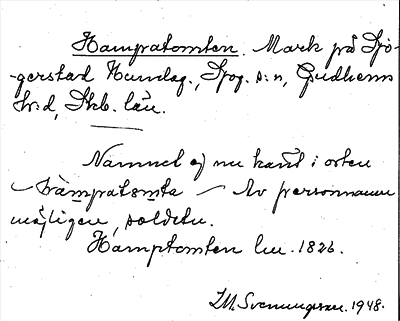 Hampatomten. Mark på Sjö-
gerstad Hundag., Sjog. s:n, Gudhems
hr:d, Skb. län.
Namnet ej nu känt i orten
– hàmpatɷmta – Av personnamn
möjligen, soldatn.
Hamptomten lm. 1826.
I.M. Svenningsson. 1948.